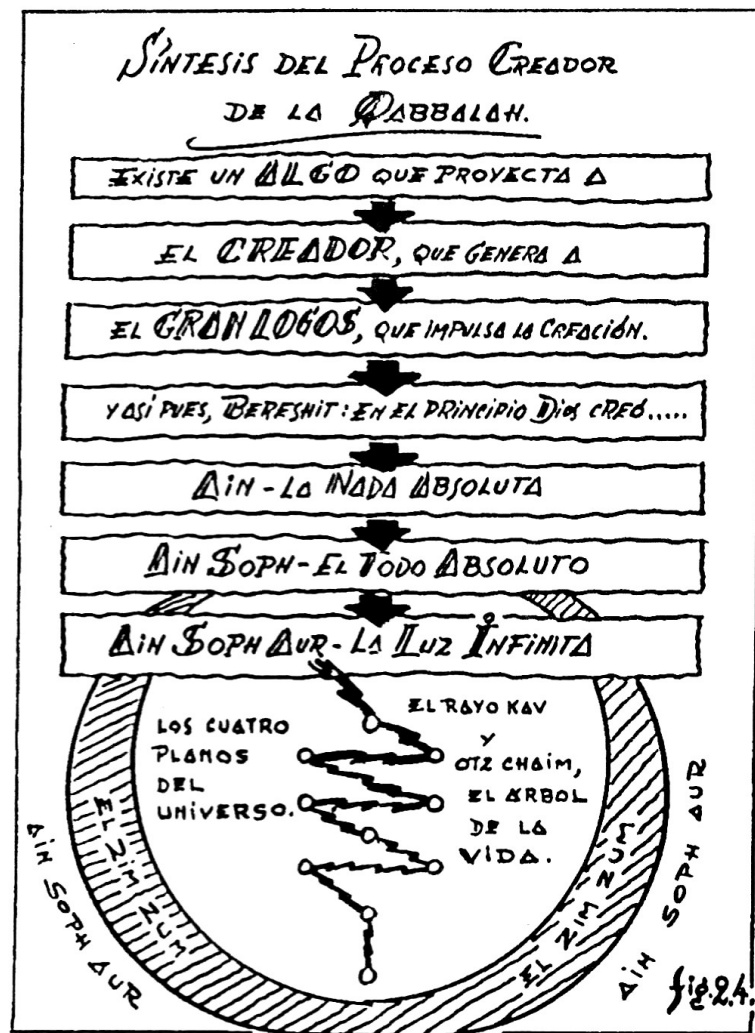 SÍNTESIS DEL PROCESO CREADOR
DE LA QABBALAH.
EXISTE UN ALGO QUE PROYECTA A
EL CREADOR, QUE GENERA A
EL GRAN LOGOS, QUE IMPULSA LA CREACIÓN.
Y ASÍ PUES, BERESHIT: EN EL PRINCIPIO DIOS CREÓ.....
AIN - LA NADA ABSOLUTA
AIN SOPH - EL TODO ABSOLUTO
AIN SOPH AUR - LA LUZ INFINITA
LOS CUATRO
PLANOS
DEL
UNIVERSO.
EL RAYO KAV
Y
OTZ CHAIM,
EL ARBOL
DE LA
VIDA.
EL ZIM ZUM
EL ZIM ZUM
AIN SOPH AUR
AIN SOPH AUR
fig.2.4.